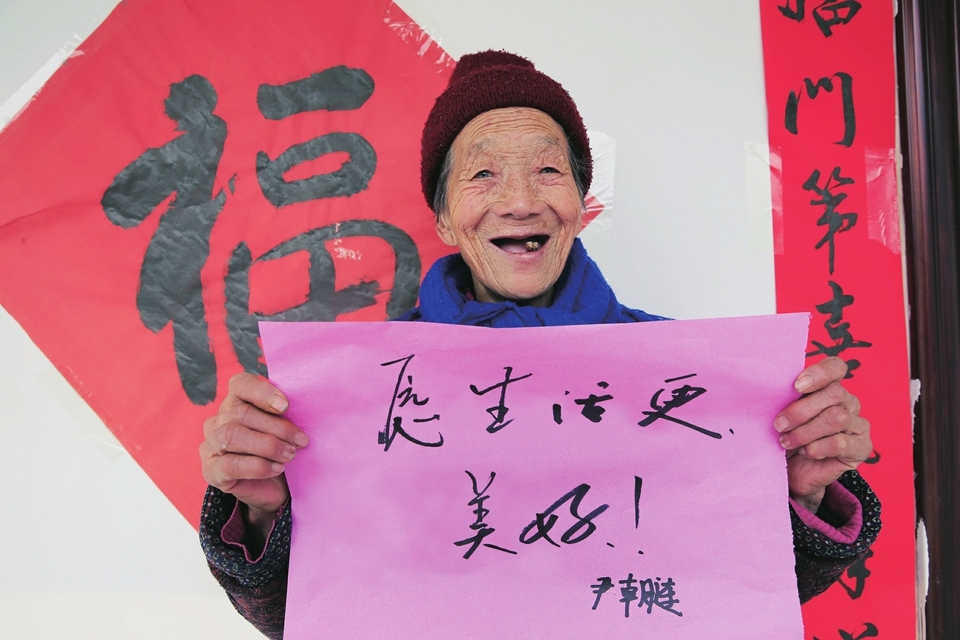 福
愿生活更
美好!
尹朝
门第喜